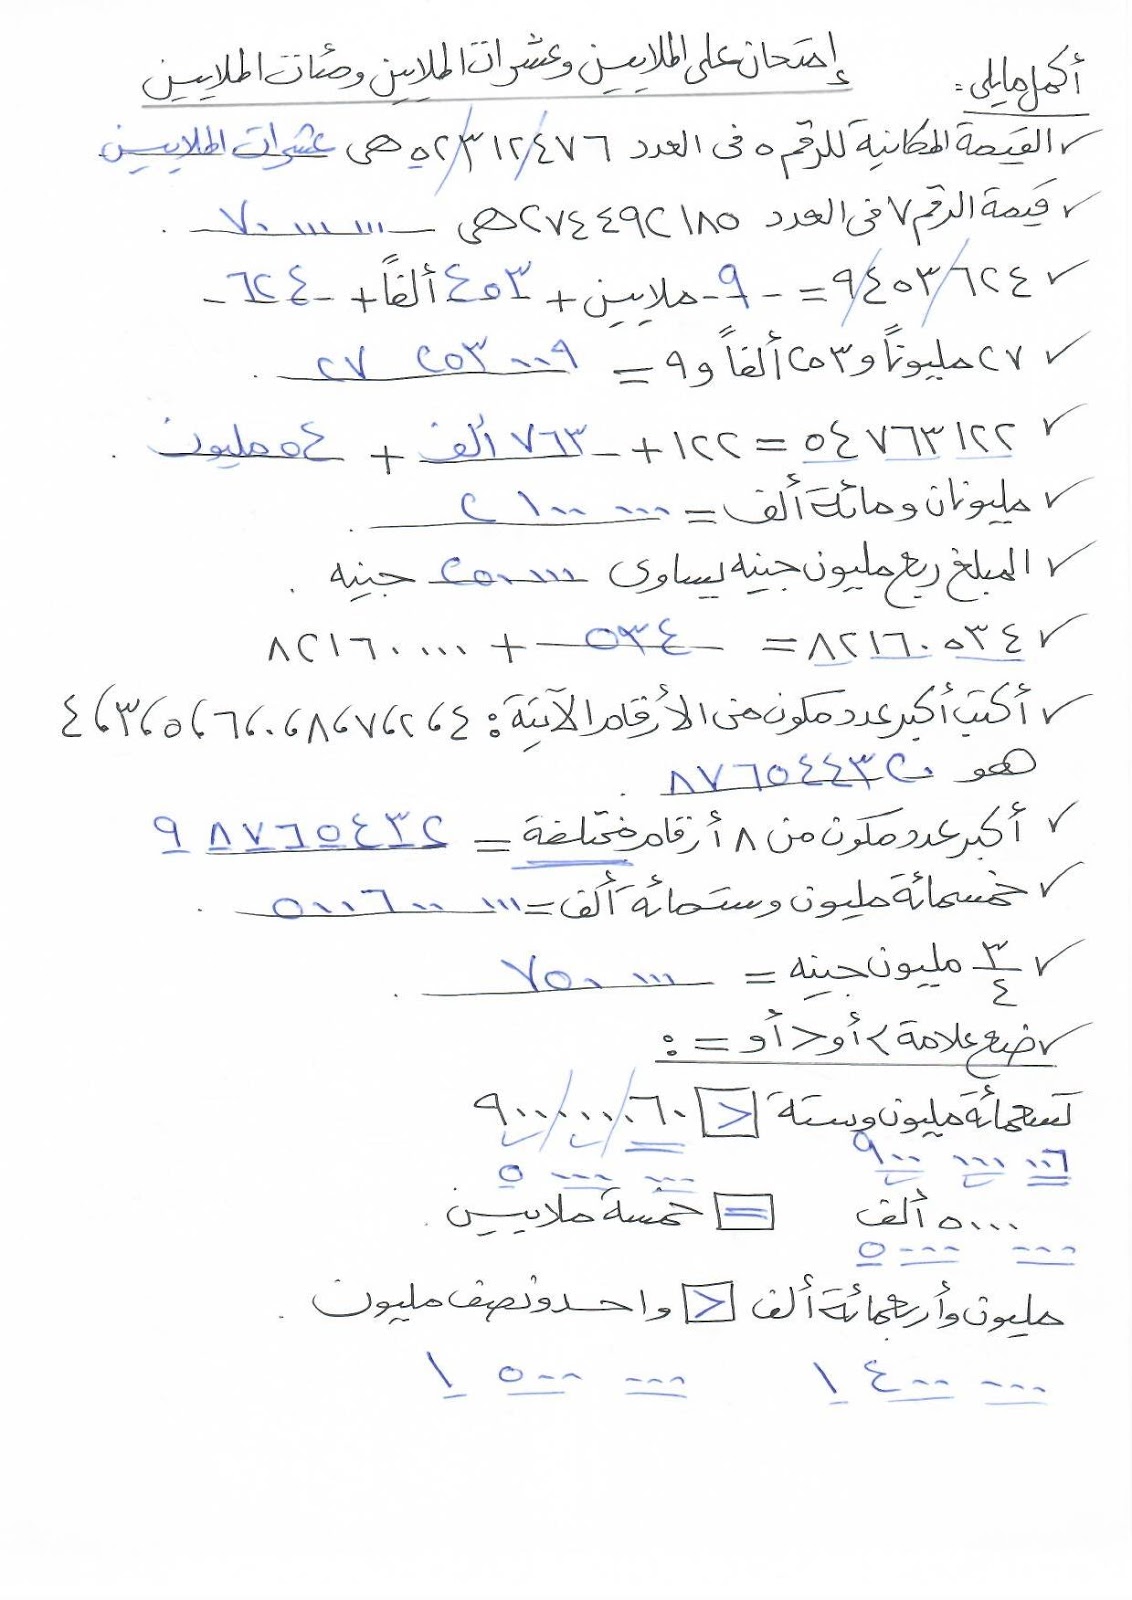 إمتحان على الملايين وعشرات الملايين ومئات الملايين
أكمل مايلى :
✓ القيمة المكانية للرقم ٥ فى العدد ٥٢/٣١٢/٤٧٦ هى عشرات الملايين
✓ قيمة الرقم ٧ فى العدد ٢٧٤٤٩٢١٨٥ هى ٧٠ ٠٠٠ ٠٠٠ .
✓ ٩/٤٠٣/٦٢٤ = -٩- ملايين + ٤٠٣ ألفاً + -٦٢٤-
✓ ٢٧ مليوناً و ٢٥٣ ألفاً و ٩ = ٢٧ ٢٥٣ ٠٠٩ .
✓ ٥٤ ٧٦٣ ١٢٢ = ١٢٢ + ٧٦٣ ألف + ٥٤ مليون .
✓ مليونان ومائة ألف = ٢ ١٠٠ ٠٠٠ .
✓ المبلغ ربع مليون جنيه يساوى ٢٥٠ ٠٠٠ جنيه .
✓ ٨٢١٦٠٥٣٤ = ٥٣٤ + ٨٢١٦٠٠٠٠
✓ أكتب أكبر عدد مكون من الأرقام الآتية : ٤ ، ٢ ، ٧ ، ٨ ، ٠ ، ٦ ، ٥ ، ٣ ، ٤
هو ٨٧٦٥٤٤٣٢٠ .
✓ أكبر عدد مكون من ٨ أرقام مختلفة = ٩٨٧٦٥٤٣٢
✓ خمسمائة مليون وستمائة ألف = ٥٠٠٦٠٠ ٠٠٠ .
✓ ٣/٤ مليون جنيه = ٧٥٠ ٠٠٠ .
✓ ضع علامة > أو < أو = :
تسعمائة مليون وستة < ٩٠٠/٠٠٠/٠٦٠
٩٠٠ ٠٠٠ ٠٠٦
٥ ٠٠٠ ٠٠٠
٥٠٠٠ ألف = خمسة ملايين .
٥ ٠٠٠ ٠٠٠
مليون وأربعمائة ألف < واحد ونصف مليون .
١ ٤٠٠ ٠٠٠ ١ ٥٠٠ ٠٠٠